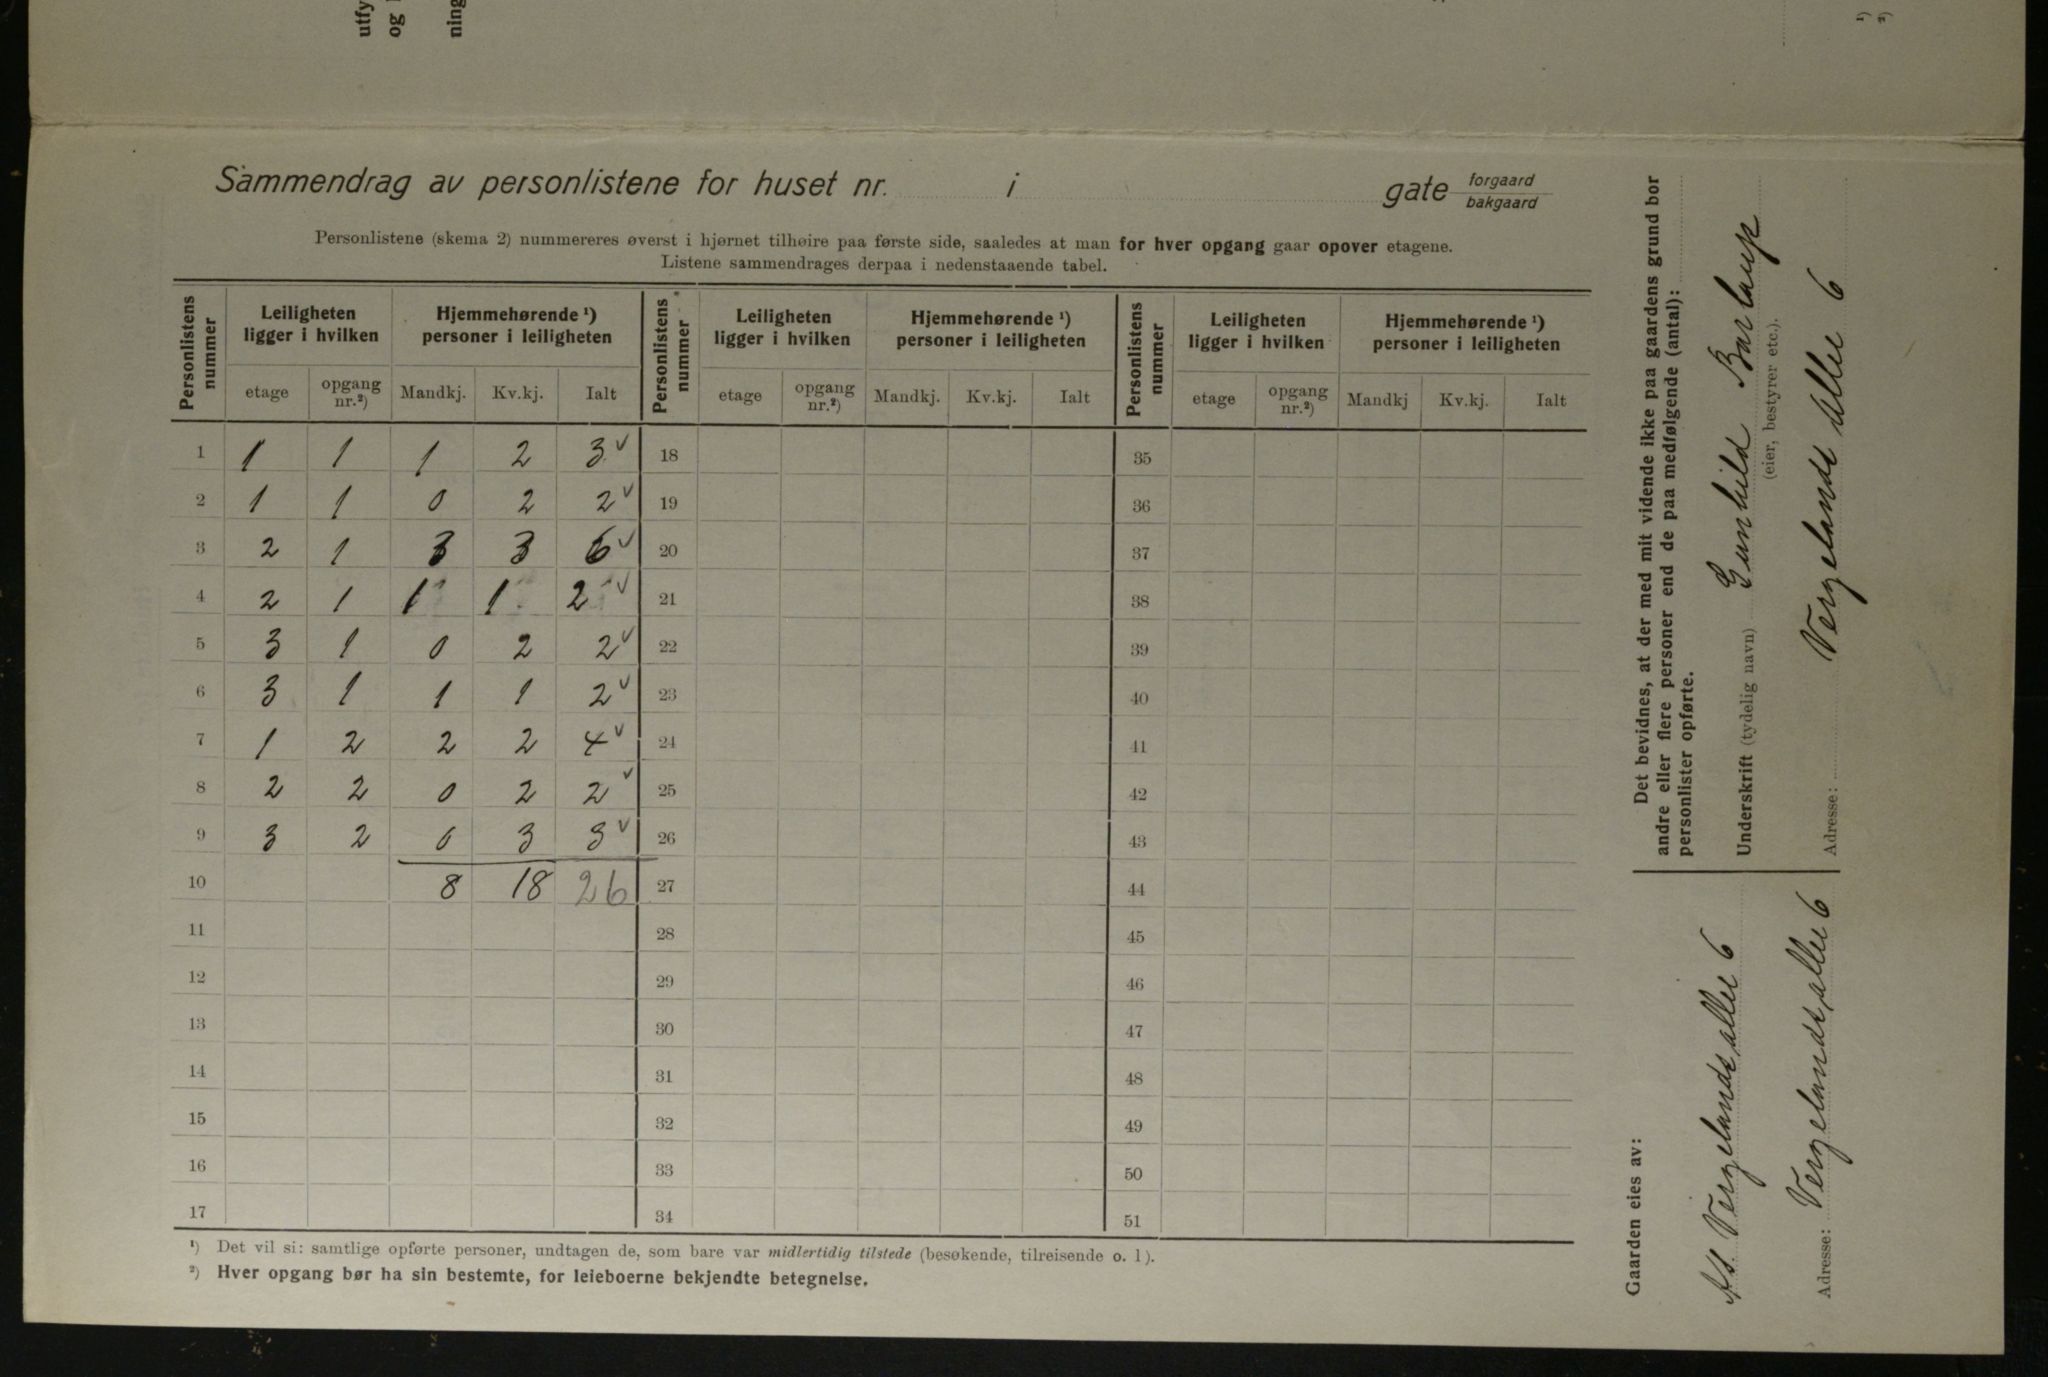 utfy
og
ning
¹)
²)
Sammendrag av personlistene for huset nr. i gate forgaard
bakgaard
Personlistene (skema 2) nummereres øverst i hjørnet tilhøire paa første side, saaledes at man for hver opgang gaar opover etagene.
Listene sammendrages derpaa i nedenstaaende tabel.
Personlistens nummer | Leiligheten ligger i hvilken | Hjemmehørende ¹) personer i leiligheten | Personlistens nummer | Leiligheten ligger i hvilken | Hjemmehørende ¹) personer i leiligheten | Personlistens nummer | Leiligheten ligger i hvilken | Hjemmehørende ¹) personer i leiligheten
etage | opgang nr.²) | Mandkj. | Kv.kj. | Ialt | etage | opgang nr.²) | Mandkj. | Kv.kj. | Ialt | etage | opgang nr.²) | Mandkj | Kv.kj. | Ialt
1 1 1 1 2 3 v 18 35
2 1 1 0 2 2 v 19 36
3 2 1 3 3 6 v 20 37
4 2 1 1 1 2 v 21 38
5 3 1 0 2 2 v 22 39
6 3 1 1 1 2 v 23 40
7 1 2 2 2 4 v 24 41
8 2 2 0 2 2 v 25 42
9 3 2 0 3 3 v 26 43
10 8 18 26 27 44
11 28 45
12 29 46
13 30 47
14 31 48
15 32 49
16 33 50
17 34 51
¹) Det vil si: samtlige opførte personer, undtagen de, som bare var midlertidig tilstede (besøkende, tilreisende o. l).
²) Hver opgang bør ha sin bestemte, for leieboerne bekjendte betegnelse.
Det bevidnes, at der med mit vidende ikke paa gaardens grund bor
andre eller flere personer end de paa medfølgende (antal):
personlister opførte.
Underskrift (tydelig navn) Gunhild Barlaup
(eier, bestyrer etc.).
Adresse: Vergelands Alle 6
Gaarden eies av:
As. Vergelands alle 6
Adresse: Vergelands alle 6